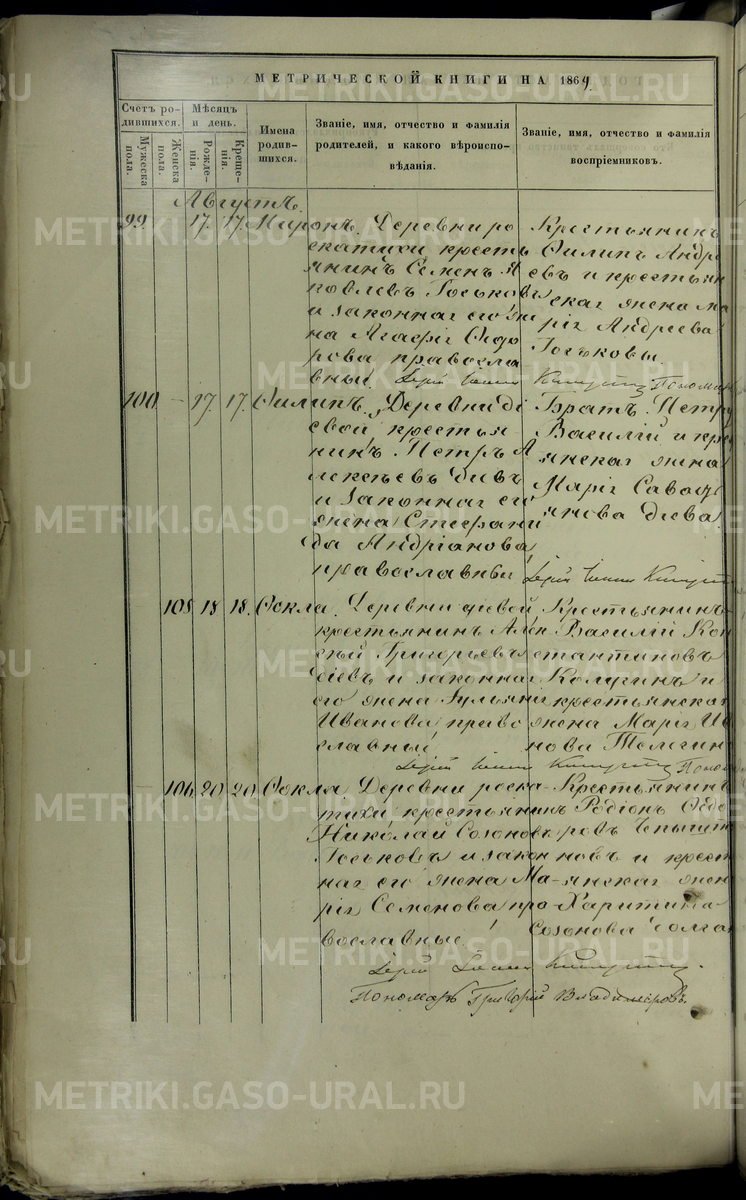 МЕТРИЧЕСКОЙ КНИГИ НА 1869.
Счетъ ро-
дившихся.
Мужеска пола.
Женска пола.
Мѣсяцъ
и день.
Рожде-
нія.
Креще-
нія.
Имена
родив-
шихся.
Званіе, имя, отчество и фамилія
родителей, и какого вѣроиспо-
вѣданія.
Званіе, имя, отчество и фамилія
воспріемниковъ.
Августъ.
99 17. 17. Миронъ.
Деревни ро
скатихи кресть
янинъ Семенъ Я
ковлевъ Госьковъ
и законная его же
на Агафія Ѳедо
рова православ
вные
Крестьянинъ
Филипъ Андре
евъ и крестьян
ская жена Ма
рія Андреева
Госьковы.
Іерей Іоаннъ
Пономар
100 — 17. 17. Филипъ.
Деревни Ді
евой крестья
нинъ Петръ А
лексѣевъ Діевъ
и законная его
жена Стефани
да Андріанова
православные
Братъ Петръ
Василій и кре
янская жена
Марія Савать
янова Діева.
Іерей Іоаннъ
105 18 18. Ѳекла.
Деревни Діевой
крестьянинъ Алек
сѣй Григорьевъ
Діевъ и законная
его жена Іуліянія
Иванова право
славные
Крестьянинъ
Василій Кон
стантиновъ
Калугинъ и
крестьянская
жена Марія Ив
нова Телегин
Іерей Іоаннъ
Поном
106 20 20. Ѳекла.
Деревни роска-
тихи крестьянинъ
Николай Созоновъ
Госьковъ и закон
ная его жена Ма-
рія Семенова пра
вославные
Крестьянинъ
Родіонъ Ѳедо
ровъ
новъ и крест
янская жен
Харитина
Созонова
Іерей Іоаннъ
Пономарь Григорій Владиміровъ.
METRIKI.GASO-URAL.RU